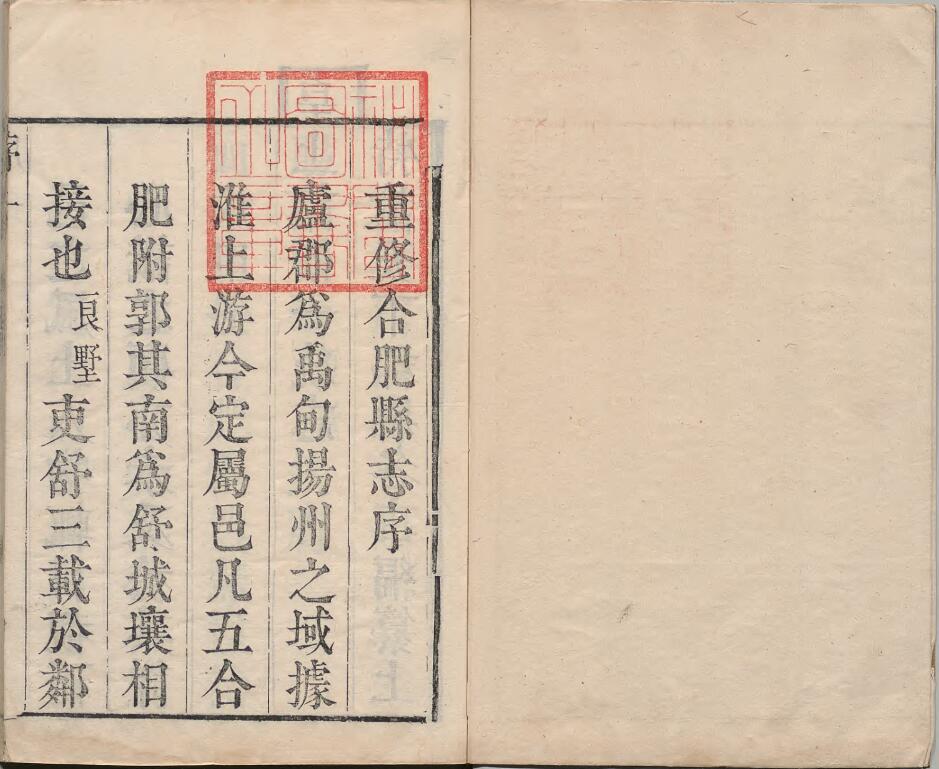 重修合肥縣志序
廬郡爲禹甸揚州之域據
淮上游今定屬邑凡五合
肥附郭其南爲舒城壤相
接也良墅吏舒三載於鄰
序 一